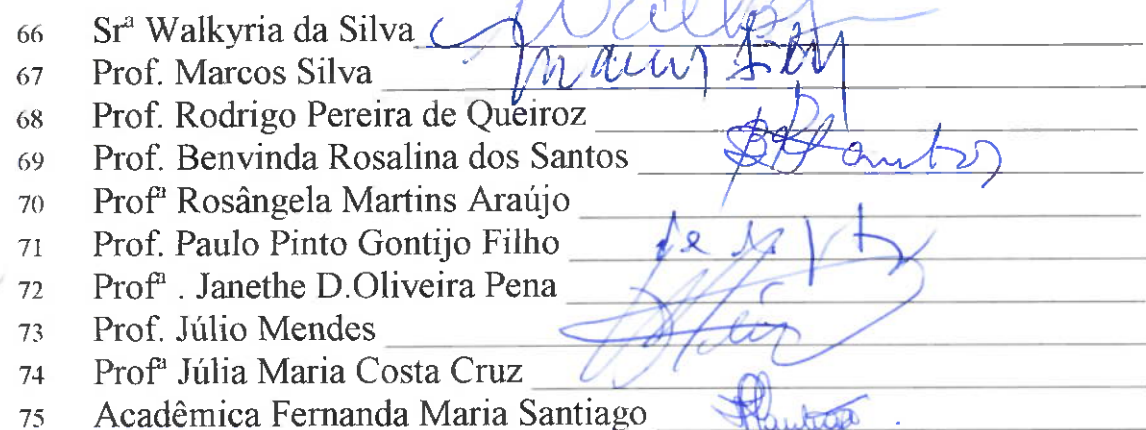 66 Srª Walkyria da Silva
67 Prof. Marcos Silva
68 Prof. Rodrigo Pereira de Queiroz
69 Prof. Benvinda Rosalina dos Santos
70 Profª Rosângela Martins Araújo
71 Prof. Paulo Pinto Gontijo Filho
72 Profª . Janethe D.Oliveira Pena
73 Prof. Júlio Mendes
74 Profª Júlia Maria Costa Cruz
75 Acadêmica Fernanda Maria Santiago